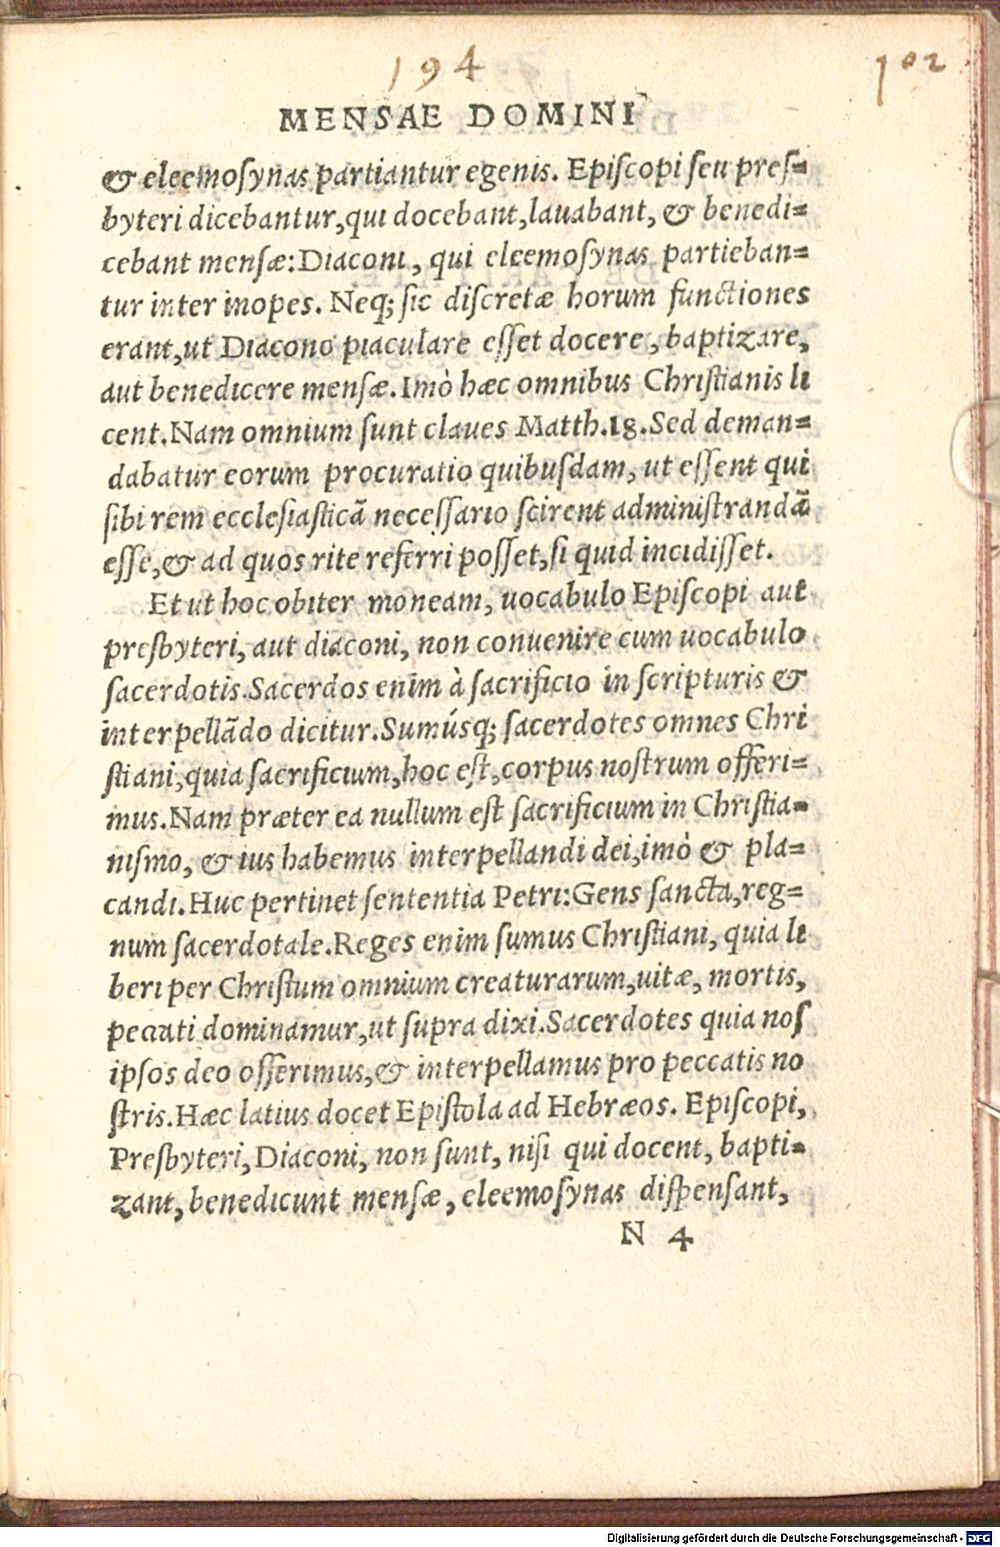 194
102
MENSAE DOMINI
& eleemosynas partiantur egenis. Episcopi seu pres=
byteri dicebantur,qui docebant,lauabant, & benedi=
cebant mensæ:Diaconi, qui eleemosynas partieban=
tur inter inopes. Neq; sic discretæ horum functiones
erant,ut Diacono piaculare esset docere, baptizare,
aut benedicere mensæ.Imò hæc omnibus Christianis li
cent.Nam omnium sunt claues Matth.18.Sed deman=
dabatur eorum procuratio quibusdam, ut essent qui
sibi rem ecclesiasticā necessario scirent administrandā
esse,& ad quos rite referri posset,si quid incidisset.
Et ut hoc obiter moneam, uocabulo Episcopi aut
presbyteri, aut diaconi, non conuenire cum uocabulo
sacerdotis.Sacerdos enim à sacrificio in scripturis &
interpellādo dicitur.Sumúsq; sacerdotes omnes Chri
stiani,quia sacrificium,hoc est,corpus nostrum offeri=
mus.Nam præter ea nullum est sacrificium in Christia=
nismo, & ius habemus interpellandi dei,imò & pla=
candi.Huc pertinet sententia Petri:Gens sancta,reg=
num sacerdotale.Reges enim sumus Christiani, quia li
beri per Christum omnium creaturarum,uitæ, mortis,
peccati dominamur,ut supra dixi.Sacerdotes quia nos
ipsos deo offerimus,& interpellamus pro peccatis no
stris.Hæc latius docet Epistola ad Hebræos. Episcopi,
Presbyteri, Diaconi, non sunt, nisi qui docent, bapti=
zant, benedicunt mensæ, eleemosynas dispensant,
N 4
Digitalisierung gefördert durch die Deutsche Forschungsgemeinschaft - DFG